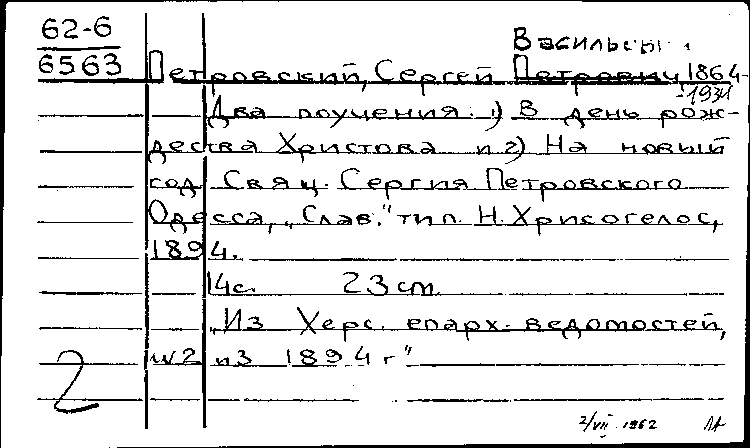 62-6
6563
Васильевич
Петровский, Сергей Петрович, 1864-
-1931
Два поучения: 1) В день рож-
дества Христова и 2) На новый
год. Свящ. Сергия Петровского
Одесса, „Слав." тип. Н. Хрисогелос,
1894.
14с. 23 см.
„Из Херс. епарх. ведомостей,
№2 из 1894 г"
2
2/VII 1962